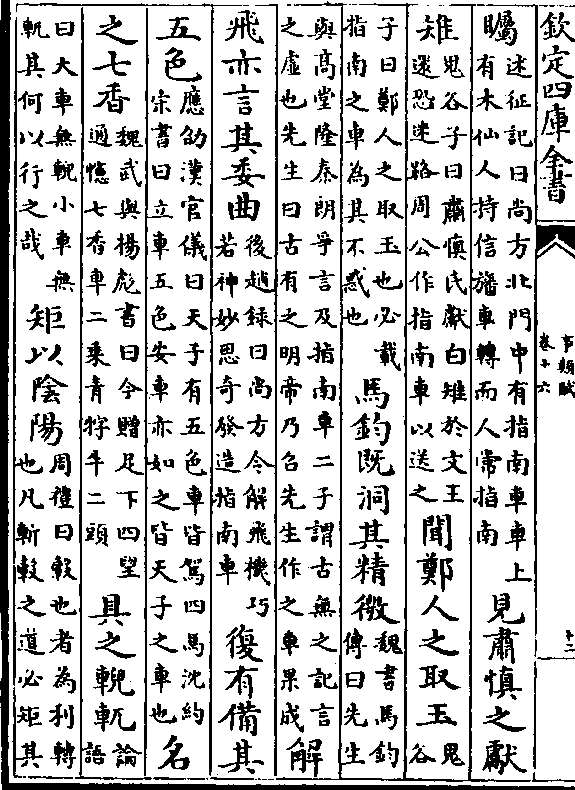 欽定四庫全書
事類賦
卷十六
矚述征記曰尚方北門中有指南車車上有木仙人持信旛車轉而人常指南見肅慎之獻
雉鬼谷子曰肅慎氏獻白雉於文王還恐迷路周公作指南車以送之聞鄭人之取玉鬼谷
子曰鄭人之取玉也必載指南之車為其不惑也馬鈞既洞其精微魏書馬鈞傳曰先生
與高堂隆秦朗爭言及指南車二子謂古無之記言之虛也先生曰古有之明帝乃召先生作之車果成解
飛亦言其委曲後趙録曰尚方令解飛機巧若神妙思奇發造指南車復有備其
五色應劭漢官儀曰天子有五色車皆駕四馬沈約宋書曰立車五色安車亦如之皆天子之車也名
之七香魏武與楊彪書曰今贈足下四望通幰七香車二乗青牸牛二頭具之輗軏論語
曰大車無輗小車無軏其何以行之哉矩以陰陽周禮曰轂也者為利轉也凡斬轂之道必矩其